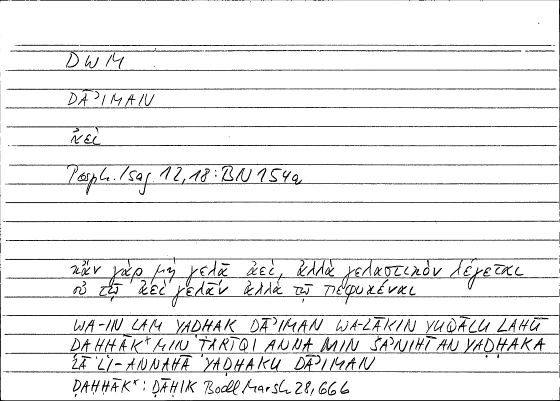 DWM
DĀʾIMAN
ἀεὶ
Porph. Isag 12,18: BN 154a
κἂν γὰρ μὴ γελᾷ ἀεί, ἀλλὰ γελαστικὸν λέγεται
οὐ τῷ ἀεὶ γελᾶν ἀλλὰ τῷ πεφυκέναι
WA-IN LAM YAḌHAK DĀʾIMAN WA-LĀKIN YUQĀLU LAHŪ
ḌAḤḤĀK* MIN ṬARĪQI ANNA MIN ŠAʾNIHĪ AN YAḌHAKA
LĀ LI-ANNAHĀ YAḌHAKU DĀʾIMAN
ḌAḤḤĀK*: ḌĀḤIK Bodl. Marsh 28,666